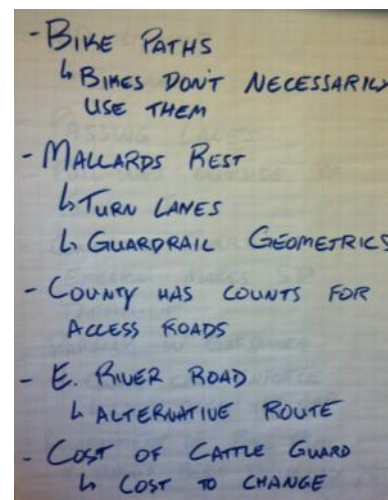 - BIKE PATHS
↳ BIKES DON'T NECESSARILY
USE THEM
- MALLARDS REST
↳ TURN LANES
↳ GUARDRAIL GEOMETRICS
- COUNTY HAS COUNTS FOR
ACCESS ROADS
- E. RIVER ROAD
↳ ALTERNATIVE ROUTE
- COST OF CATTLE GUARD
↳ COST TO CHANGE